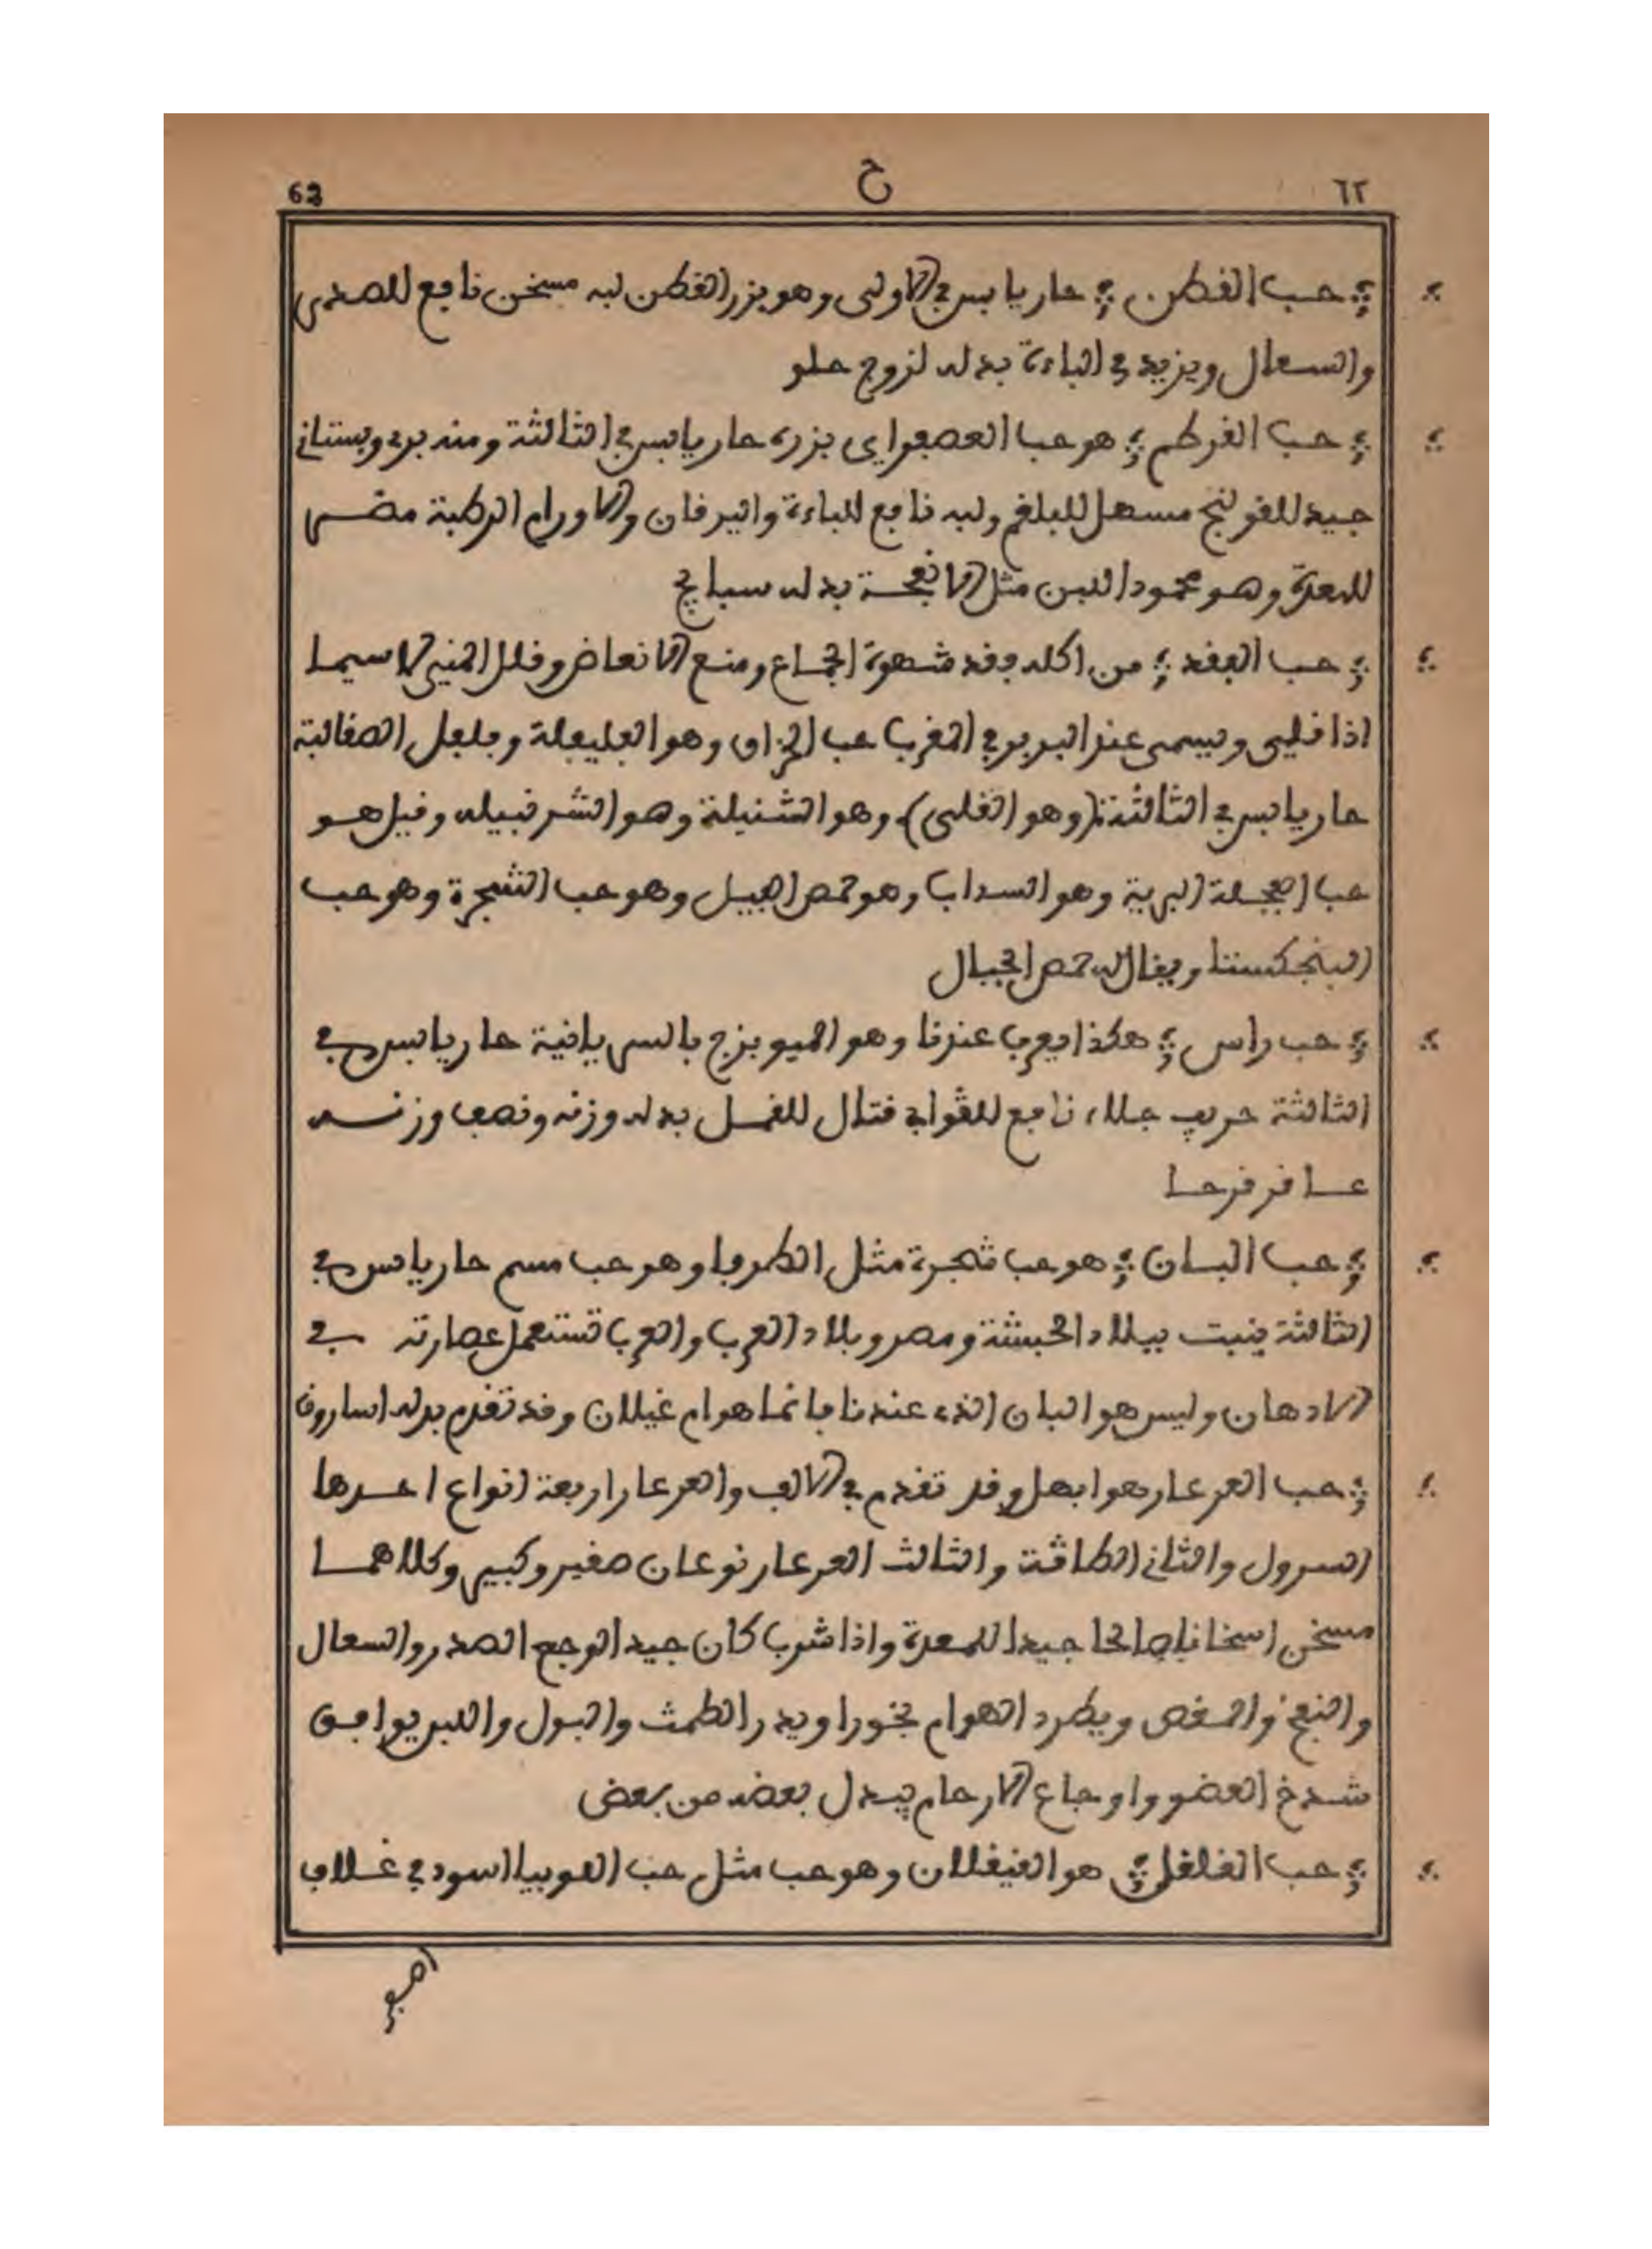 ٦٢ ح 63
حب القطن حار يابس في الاولى وهو بزر القطن لبه مسخن نافع للصدر
والسعال ويزيد في الباءة بدله لزوج حلو
حب القرطم هو حب العصفر اي بزره حار يابس في الثالثة ومنه بري وبستاني
جيد للقولنج مسهل للبلغم ولبه نافع للباءة واليرقان والاورام الرطبة مضر
للمعدة وهو محمود اللبن مثل الانفحة بدله سبايج
حب الفقد من اكله فقد شهوة الجماع ومنع الانعاض وقلل المني لاسيما
اذا قلي ويسمى عند البربر في المغرب حب الخزاف وهو الفليفلة وفلفل الصقالبة
حار يابس في الثالثة (وهو القلى) وهو الشنبلة وهو الشرنبيله وقيل هو
حب الفجلة البرية وهو السداب وهو حمص الجبيل وهو حب الشجرة وهو حب
البنجكستا ويقال له حمص الجبال
حب راس هكذا يعرف عندنا وهو الميوبزج بالسريانية حار يابس في
الثالثة حريف جلاء نافع للقوابي قتال للقمل بدله وزنه ونصف وزنه
عاقرقرحا
حب البان هو حب شجرة مثل الطرفا وهو حب مسم حار يابس في
الثالثة ينبت ببلاد الحبشة ومصر وبلاد العرب والعرب تستعمل عصارته في
الادهان وليس هو البان الذي عندنا فانما هو ام غيلان وقد تقدم بدله اسارون
حب العرعار هو ابهل وقد تقدم في الالف والعرعار اربعة انواع احدها
السرول والثاني الطاقة والثالث العرعار نوعان صغير وكبير وكلاهما
مسخن اسخانا صالحا جيدا للمعدة واذا شرب كان جيدا لوجع الصدر والسعال
والنفخ والمغص ويطرد الهوام بخورا ويدر الطمث والبول واللبن يوافق
شدخ العضو واوجاع الارحام يبدل بعضه من بعض
حب القلقل هو القيقلان وهو حب مثل حب اللوبيا اسود في غلاف
اصفر